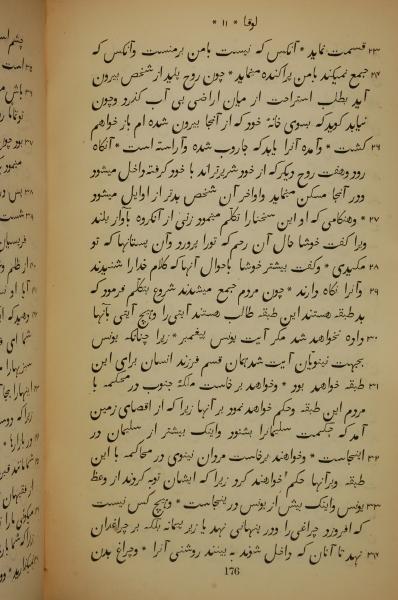 لوقا * ۱۱ *
۲۳ قسمت نماید * آنکس که نیست بامن برمنست وآنکس که
۲۴ جمع نمیکند بامن پراکنده مینماید * چون روح پلید از شخص بیرون
آید بطلب استراحت از میان اراضی بی آب گذرد وچون
نیابد گوید که بسوی خانهٔ خود که از آنجا بیرون شده ام باز خواهم
۲۶ گشت * وآمده آنرا یابد که جاروب شده وآراسته است * آنگاه
رود وهفت روح دیگر که از خود شریرترند با خود گرفته وداخل میشود
ودر آنجا مسکن مینماید واواخر آن شخص بدتر از اوایل میشود
۲۷ * وهنگامی که او این سخنانرا تکلّم مینمود زنی از آنگروه بآواز بلند
ویرا گفت خوشا حال آن رحم که تورا پرورد وآن پستانها که تو
۲۸ مکیدی * وگفت بیشتر خوشا باحوال آنها که کلام خدارا شنیدند
۲۹ وآنرا نگاه دارند * چون مردم جمع میشدند شروع بتکلّم فرمود که
بد طبقه هستند این طبقه طالب هستند آیتی را وهیچ آیتی بآنها
۳۰ داده نخواهد شد مگر آیت یونس پیغمبر * زیرا چنانکه یونس
بجهت نینویان آیت شد همان قسم فرزند انسان برای این
۳۱ طبقه خواهد بود * وخواهد برخاست ملکهٔ جنوب در محکمه با
مردم این طبقه وحکم خواهد نمود بر آنها زیرا که از اقصای زمین
آمد که حکمت سلیمانرا بشنود واینک بیشتر از سلیمان در
۳۲ اینجاست * وخواهند برخاست مردان نینوی در محاکمه با این
طبقه وبرآنها حکم خواهند کرد زیرا که ایشان توبه کردند از وعظ
۳۳ یونس واینک بیش از یونس در اینجاست * وهیچ کس نیست
که افروزد چراغی را ودر پنهانی نهد یا زیر پیمانه بلکه بر چراغدان
۳۴ نهد تا آنان که داخل شوند به بینند روشنی آنرا * وچراغ بدن
176